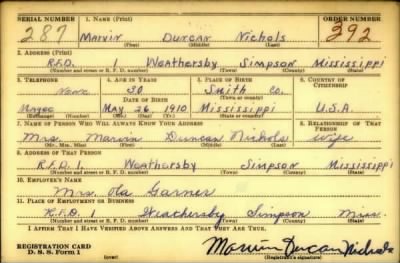 SERIAL NUMBER 1. NAME (Print) ORDER NUMBER
287 Marvin Duncan Nichols 392
(First) (Middle) (Last)
2. ADDRESS (Print)
R.F.D. 1 Weathersby Simpson Mississippi
(Number and street or R. F. D. number) (Town) (County) (State)
3. TELEPHONE 4. AGE IN YEARS 5. PLACE OF BIRTH 6. COUNTRY OF CITIZENSHIP
None 30 Smith Co.
DATE OF BIRTH (Town or county)
May 26 1910 Mississippi U.S.A.
(Exchange) (Number) (Mo.) (Day) (Yr.) (State or country)
7. NAME OF PERSON WHO WILL ALWAYS KNOW YOUR ADDRESS 8. RELATIONSHIP OF THAT PERSON
Mrs. Marvin Duncan Nichols Wife
(Mr., Mrs., Miss) (First) (Middle) (Last)
9. ADDRESS OF THAT PERSON
R.F.D. 1 Weathersby Simpson Mississippi
(Number and street or R. F. D. number) (Town) (County) (State)
10. EMPLOYER'S NAME
Mrs. Ola Garner
11. PLACE OF EMPLOYMENT OR BUSINESS
R.F.D. 1 Weathersby Simpson Miss.
(Number and street or R. F. D. number) (Town) (County) (State)
I AFFIRM THAT I HAVE VERIFIED ABOVE ANSWERS AND THAT THEY ARE TRUE.
REGISTRATION CARD Marvin Duncan Nichols
D. S. S. Form 1 (over) (Registrant's signature)